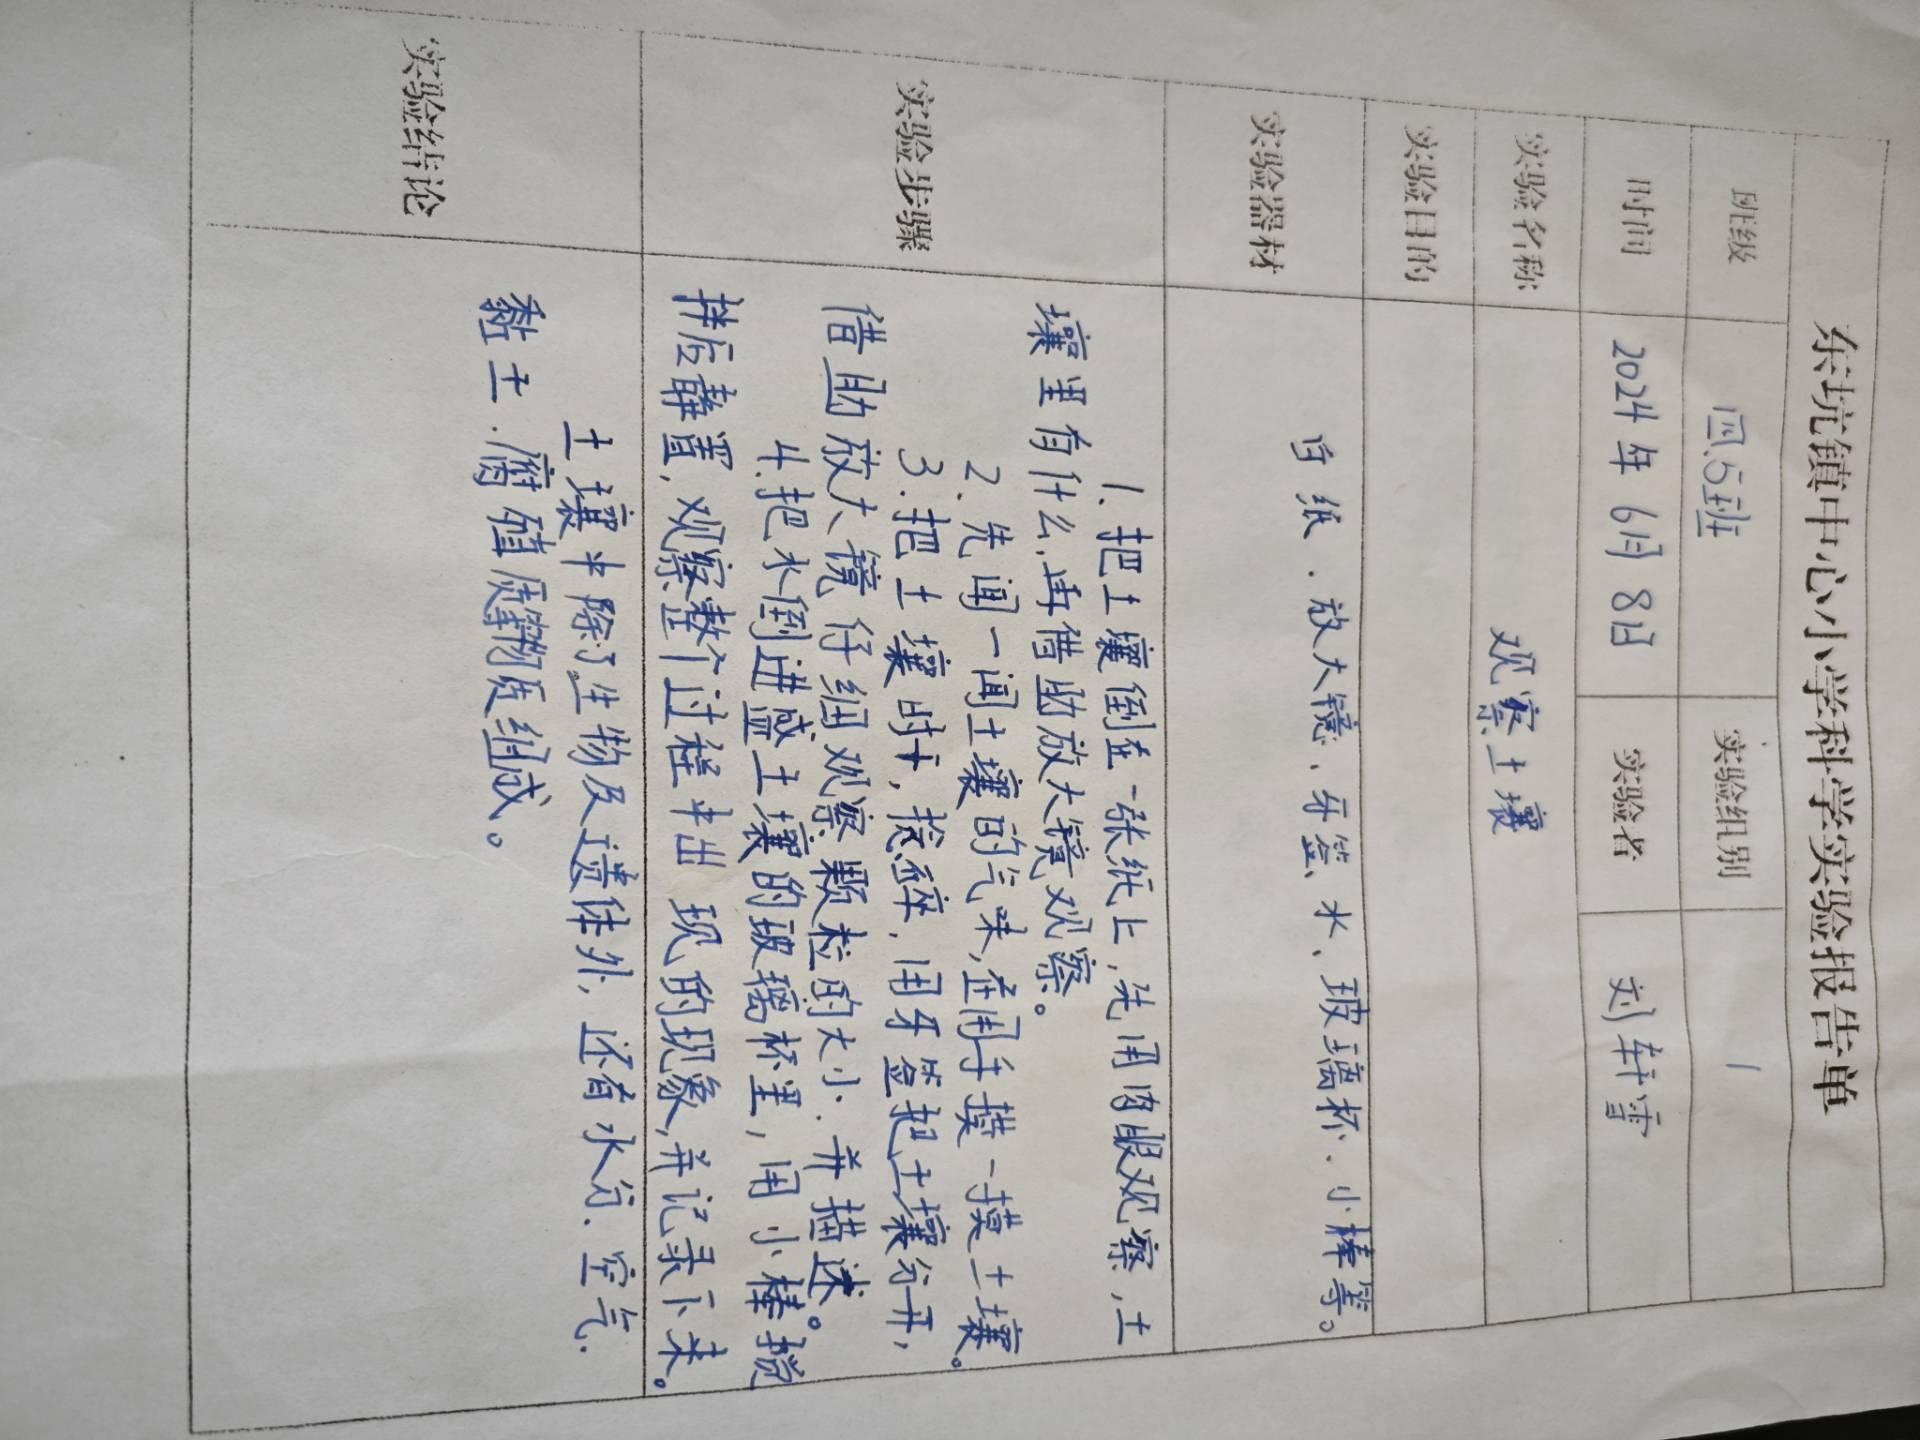 东坑镇中心小学科学实验报告单
班级 四.5班 实验组别 1
时间 2024年 6月 8日 实验者 刘轩雪
实验名称 观察土壤
实验目的
实验器材 白纸、放大镜、牙签、水、玻璃杯、小棒等。
实验步骤
1、把土壤倒在一张纸上，先用肉眼观察，土
壤里有什么，再借助放大镜观察。
2、先闻一闻土壤的气味，在用手摸一摸土壤。
3.把土壤晒干，捻碎，用牙签把土壤分开，
借助放大镜仔细观察颗粒的大小.并描述。
4.把水倒进盛土壤的玻璃杯里，用小棒搅
拌后静置，观察整个过程中出现的现象，并记录下来。
实验结论
土壤中除了生物及遗体外，还有水分、空气、
黏土、腐殖质物质组成。